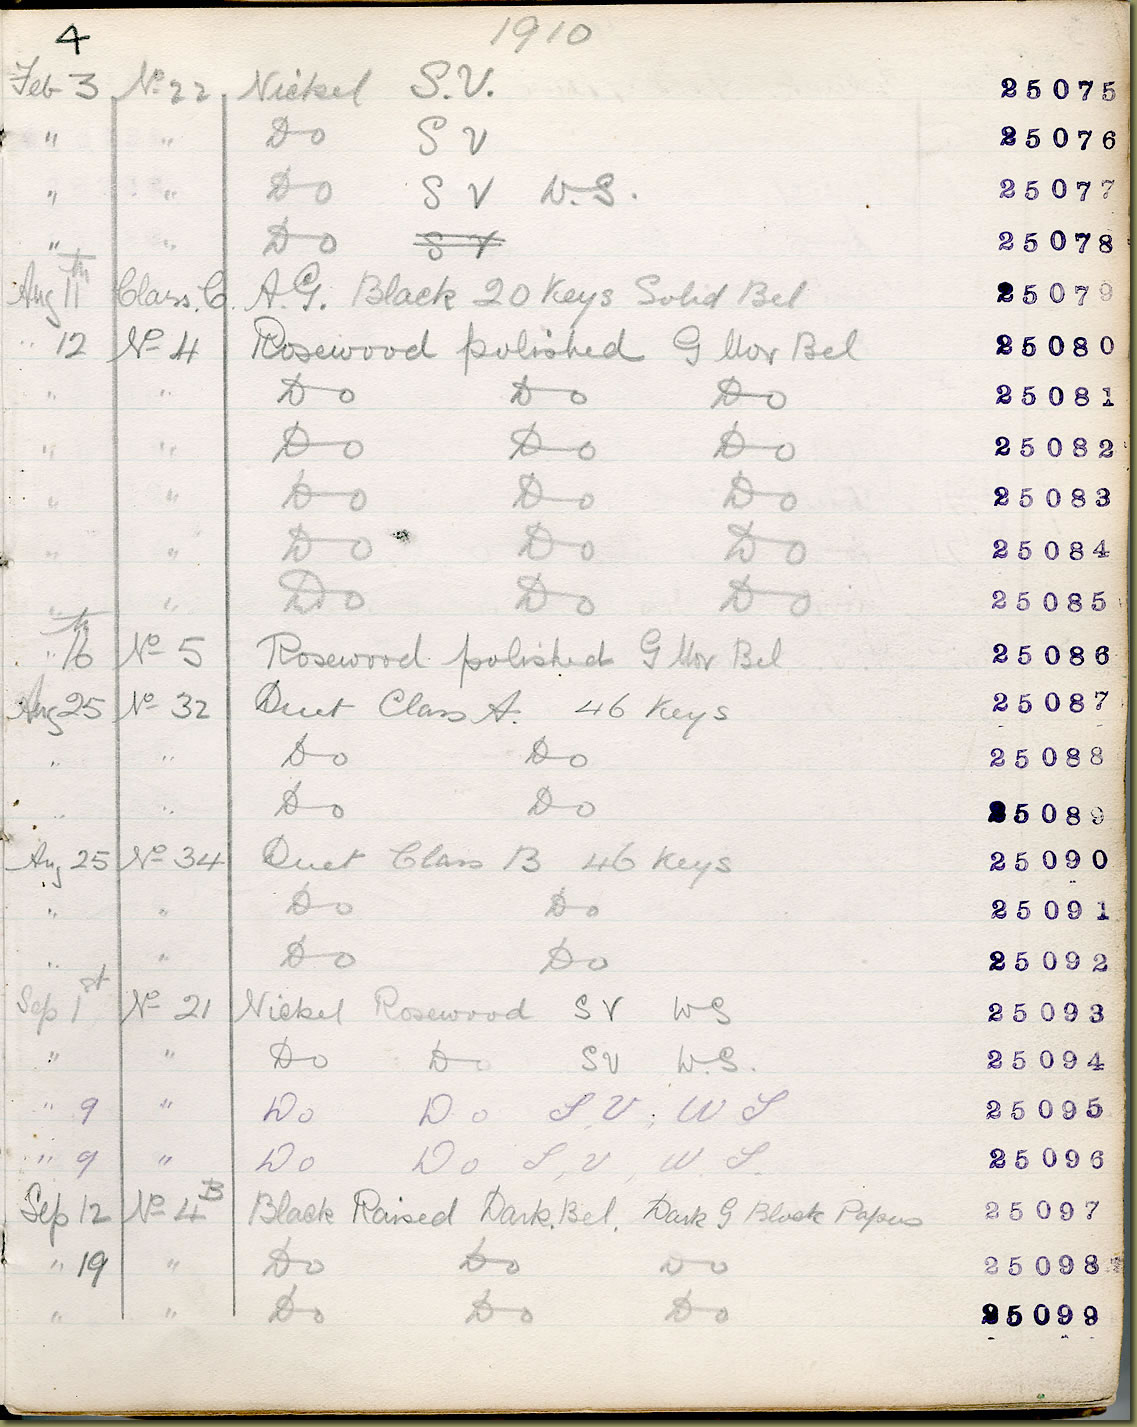 4
1910
Feb 3 No 22 Nickel S.V. 25075
" " Do S V 25076
" " Do S V W.S. 25077
" " Do S V 25078
Aug 11th Class. C. A.G. Black 20 Keys Solid Bel 25079
" 12 No 4 Rosewood polished G Mor Bel 25080
" " Do Do Do 25081
" " Do Do Do 25082
" " Do Do Do 25083
" " Do Do Do 25084
" " Do Do Do 25085
" 16th No 5 Rosewood polished G Mor Bel 25086
Aug 25 No 32 Duet Class A. 46 Keys 25087
" " Do Do 25088
" " Do Do 25089
Aug 25 No 34 Duet Class B 46 Keys 25090
" " Do Do 25091
" " Do Do 25092
Sep 1st No 21 Nickel Rosewood S V W S 25093
" " Do Do S V W.S. 25094
" 9 " Do Do S.V. W S 25095
" 9 " Do Do S.V. W.S. 25096
Sep 12 No 4B Black Raised Dark. Bel. Dark G Block Papers 25097
" 19 " Do Do Do 25098
" " Do Do Do 25099